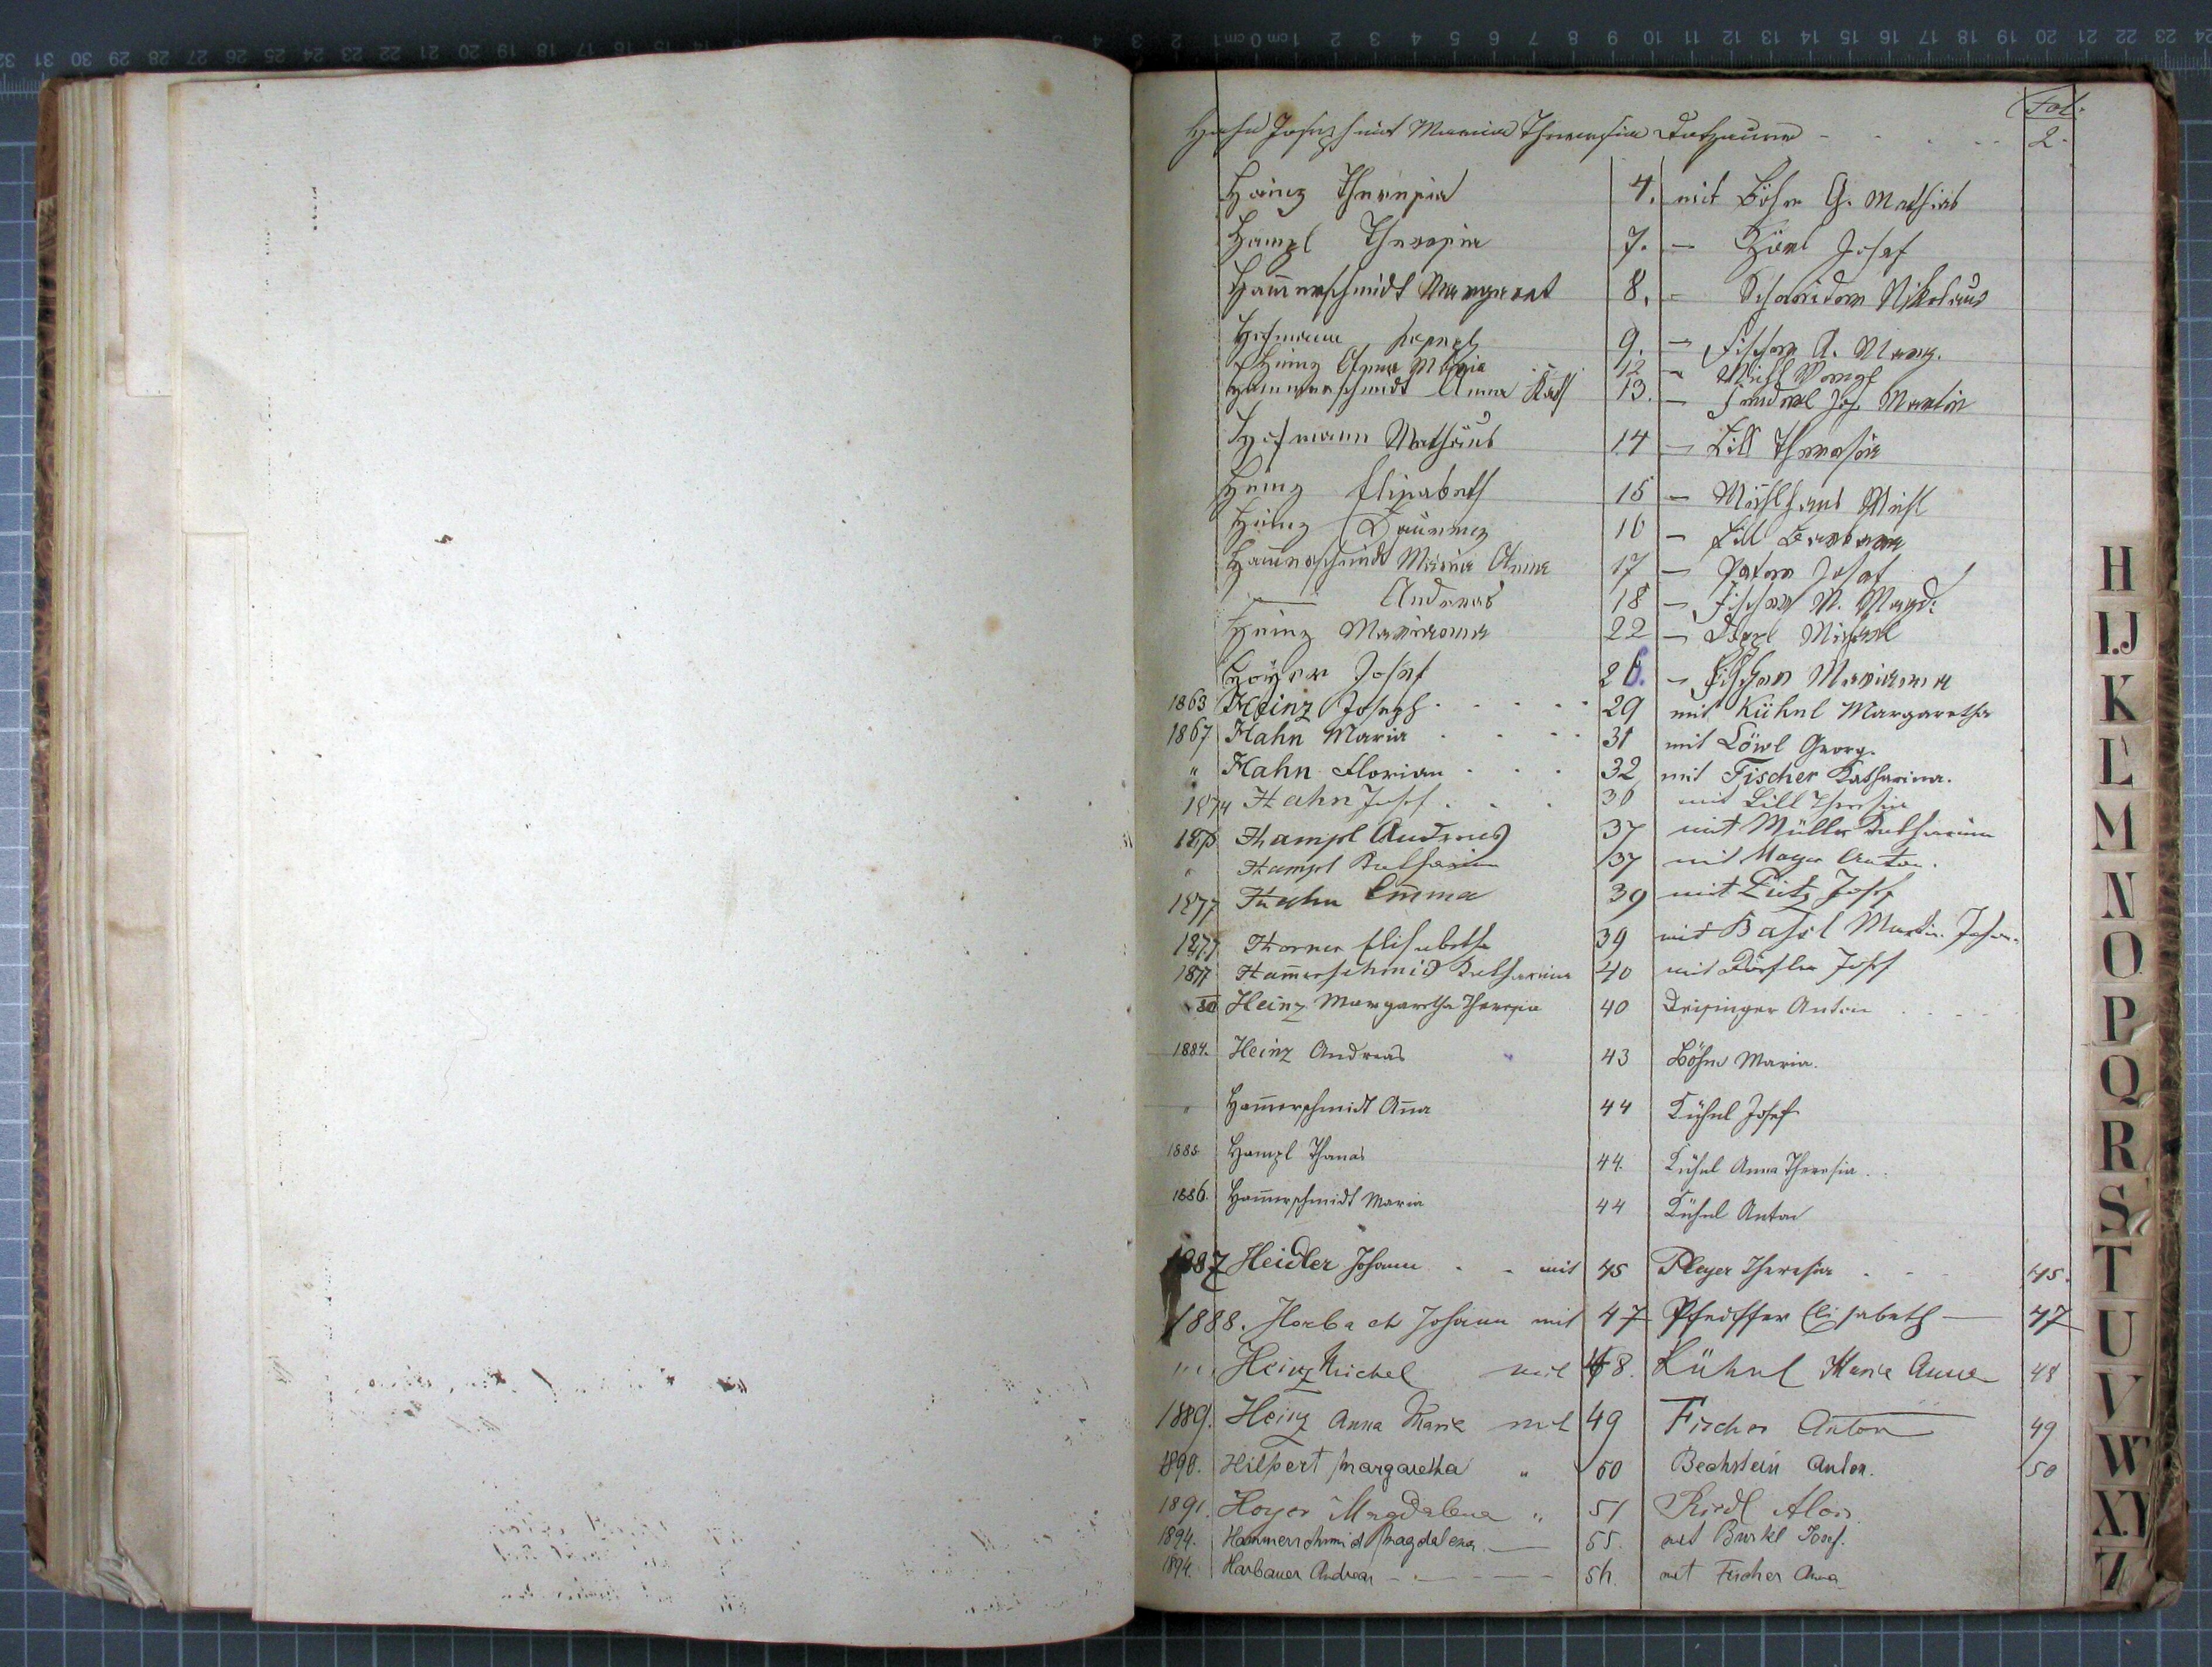 Fol:
Hahn Joseph mit Maria Theresia 2.
Heinz Theresia 4. mit Böhm G. Mathias
Hampl Theresia 7. – Josef
Ham̅erschmidt Margaret 8. – Schneider Nikolaus
Hofmann Joseph 9. – Fischer A. Marg.
Heinz Anna Maria 12 –
Hammerschmidt Anna Kath 13. – Jos. Martin
Hofmann Mathäus 14 – Lill Theresia
Heinz Elisabeth 15 – Mühlhans Mich
Heinz Laurenz 16 – Lill Barbara
Ham̅erschmidt Maria Anna 17 – Josef
— Andreas 18 – Fischer M. Magd:
Heinz Marianna 22 – Michael
Hoÿer Josef 26. – Fischer Marianna
1863 Heinz Joseph 29 mit Kühnl Margaretha
1867 Hahn Maria 31 mit Löwl Georg.
" Hahn Florian 32 mit Fischer Katharina.
1874 Hahn Josef 36 mit Lill Theresia
Hampl Andreas 37 mit Müller Katharina
" Hampl Katharina 37 mit Mayer Anton.
1877 Hahn Em̅a 39 mit Lutz Josef
1877 Horner Elisabetha 39 mit Martin
1877 Ham̅erschmid Katharina 40 mit Dörfler Josef
Heinz Margaretha Theresia 40 Deisinger Anton
1884. Heinz Andreas 43 Böhm Maria.
" Ham̅erschmidt An̅a 44 Kühnl Josef
1885 Hampl Thomas 44. Kühnl Anna Theresia.
1886. Ham̅erschmidt Maria 44 Kühnl Anton
1887 Heidler Johann - - mit 45 Pleyer Theresia 45.
1888. Horbach Johann mit 47 Pfeiffer Elisabeth — 47
" Heinz Michel mit 48. Kühnl Marie Anna 48
1889. Heinz Anna Marie mit 49 Fischer Anton 49
1890. Hilpert Margaretha " 50 Bechstein Anton. 50
1891. Hoyer Magdalena " 51 Riedl Alois.
1894. Hammerschmid Magdalena — 55. mit Burkl Josef.
1894. Harbauer Andreas - - - - 56. mit Fischer Anna
H
I.J
K
L
M
N
O
P
Q
R
S
T
U
V
W
X.Y
Z